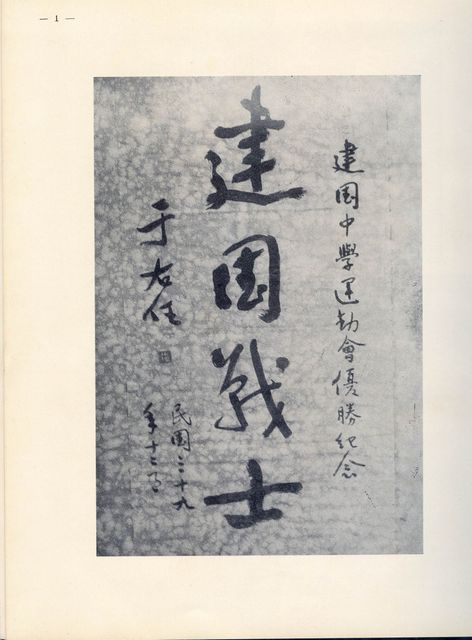 — 1 —
建國中學運動會優勝紀念
建國戰士
于右任
民國三十九
年十二月